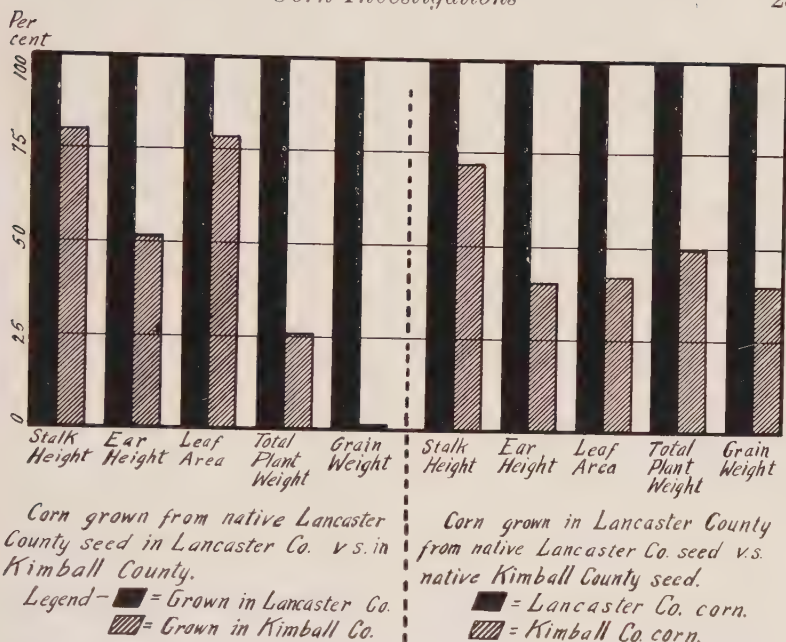 Per
cent
100
75
50
25
0
Stalk Height
Ear Height
Leaf Area
Total Plant Weight
Grain Weight
Stalk Height
Ear Height
Leaf Area
Total Plant Weight
Grain Weight
Corn grown from native Lancaster
County seed in Lancaster Co. vs. in
Kimball County.
Legend- = Grown in Lancaster Co.
= Grown in Kimball Co.
Corn grown in Lancaster County
from native Lancaster Co. seed v.s.
native Kimball County seed.
= Lancaster Co. corn.
= Kimball Co. corn.